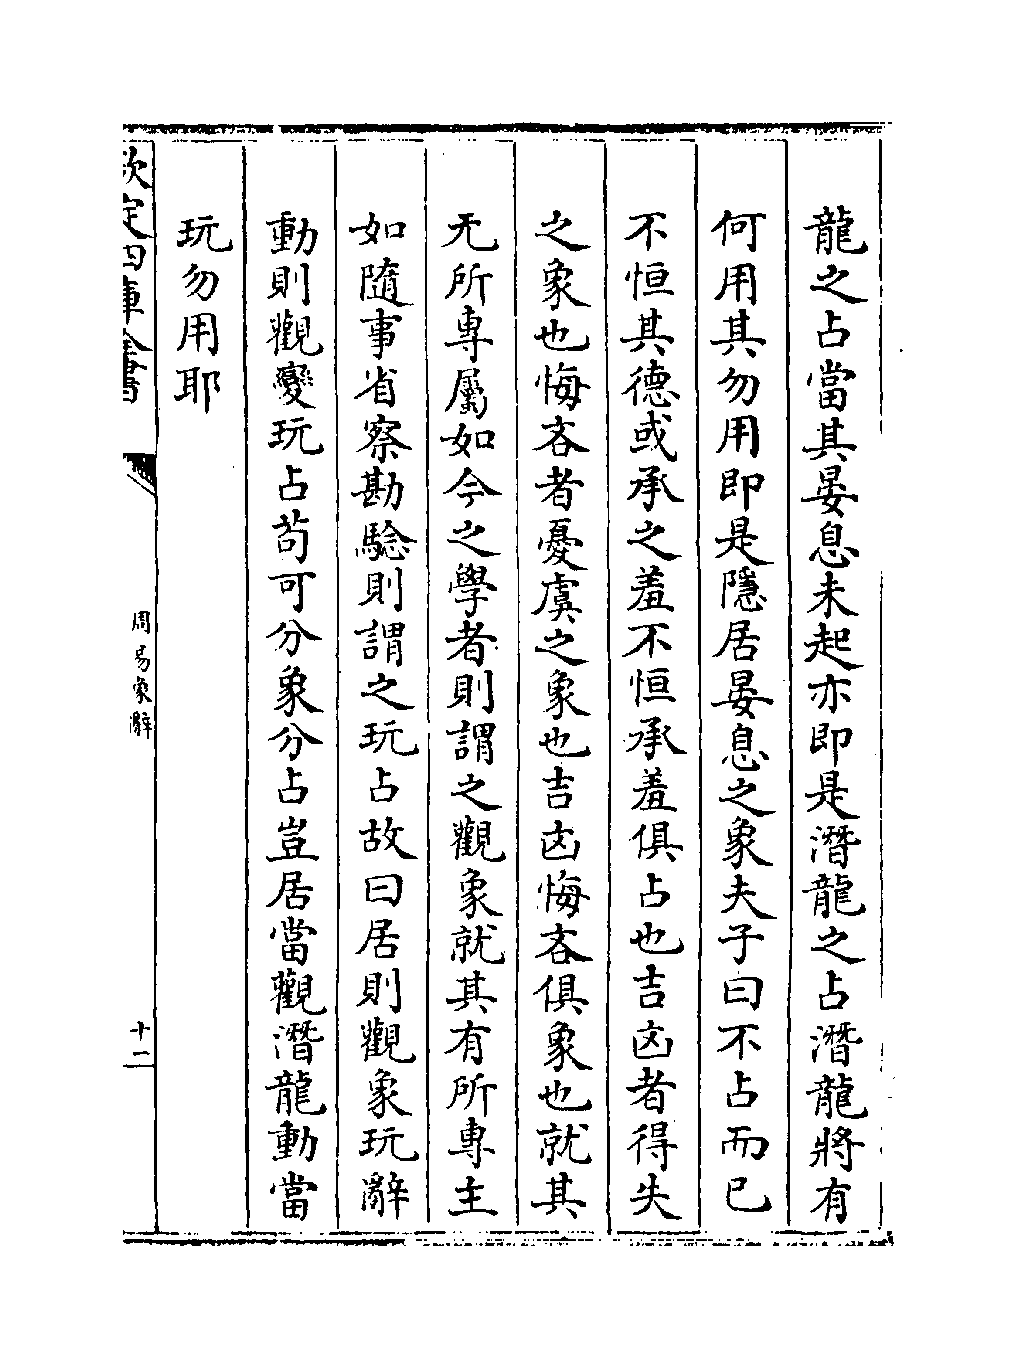 龍之占當其晏息未起亦即是潛龍之占潛龍將有
何用其勿用即是隱居晏息之象夫子曰不占而已
不恒其德或承之羞不恒承羞俱占也吉凶者得失
之象也悔吝者憂虞之象也吉凶悔吝俱象也就其
无所專屬如今之學者則謂之觀象就其有所專主
如隨事省察勘驗則謂之玩占故曰居則觀象玩辭
動則觀變玩占苟可分象分占豈居當觀潛龍動當
玩勿用耶
欽定四庫全書
周易象辭
十二